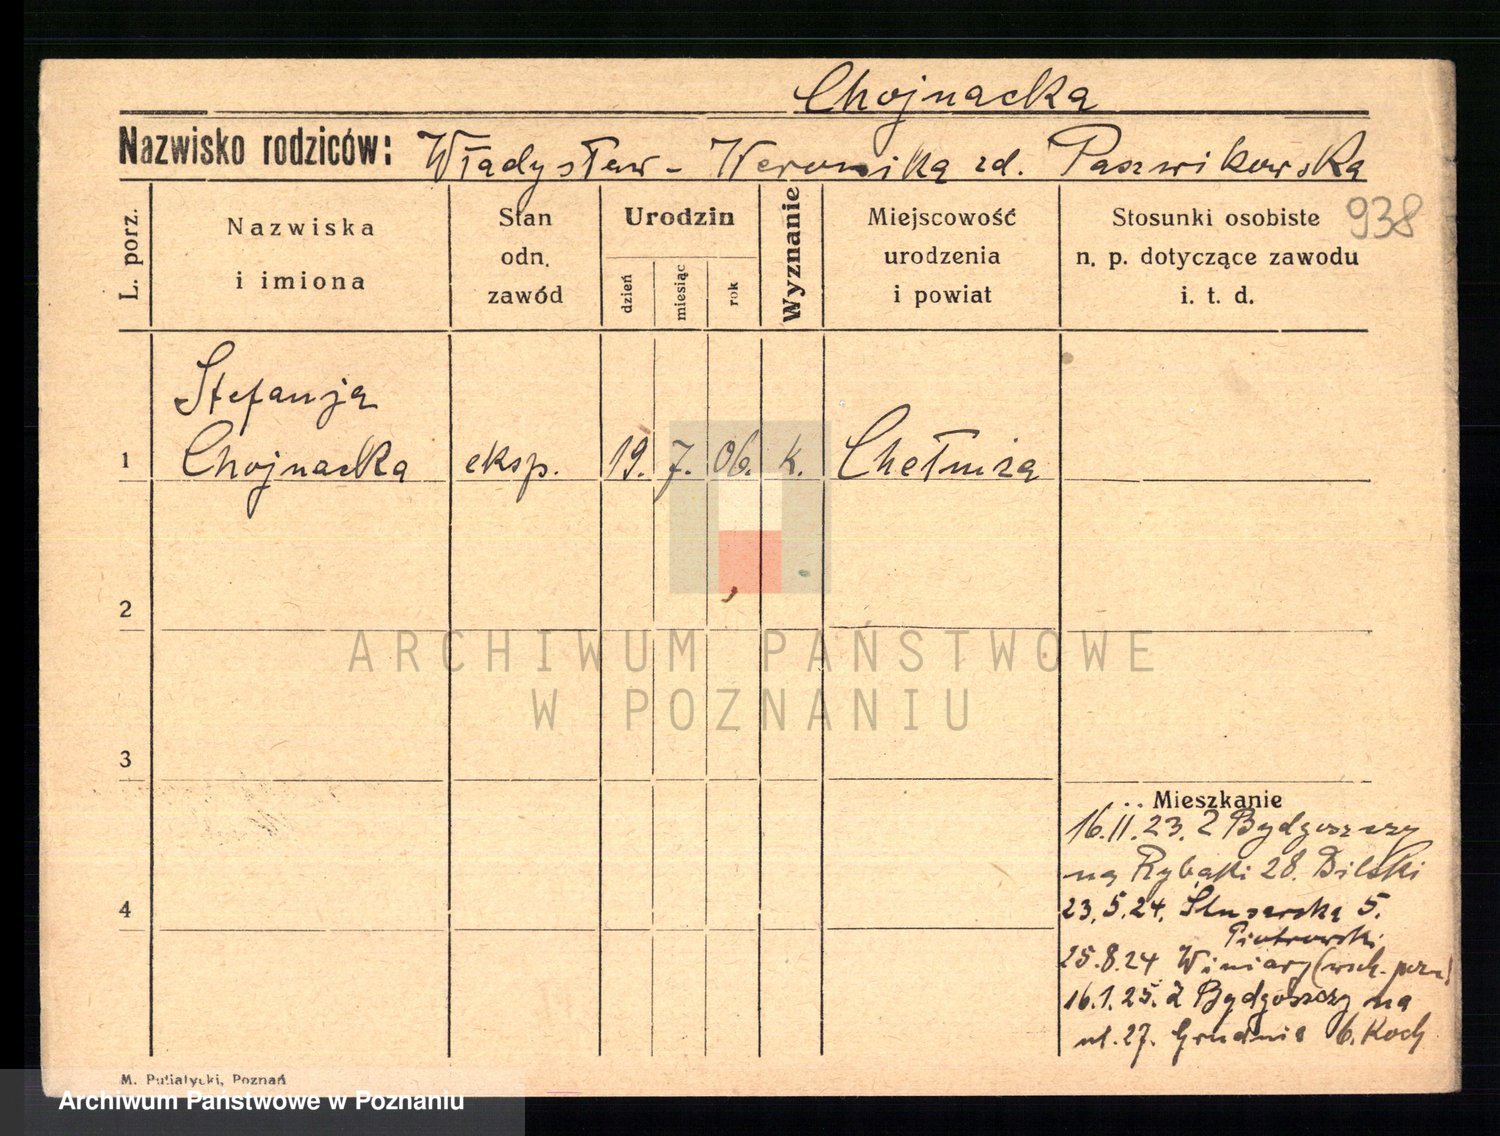 Chojnacka
Nazwisko rodziców: Władysław - Weronika zd. Paszwikowska
938
L. porz.
Nazwiska
i imiona
Stan
odn.
zawód
Urodzin
dzień
miesiąc
rok
Wyznanie
Miejscowość
urodzenia
i powiat
Stosunki osobiste
n. p. dotyczące zawodu
i. t. d.
Stefanja
1 Chojnacka eksp. 19. 7. 06. k. Chełmża
2
ARCHIWUM PAŃSTWOWE
W POZNANIU
3
Mieszkanie
16.11.23. Z Bydgoszczy
na Rybaki 28. Bilski
4
23.5.24. Ślusarska 5.
Piotrowski
25.8.24 Winiary (wsch. pozn)
16.1.25. Z Bydgoszczy na
ul. 27. Grudnia 6. Koch
M. Putiatycki, Poznań
Archiwum Państwowe w Poznaniu